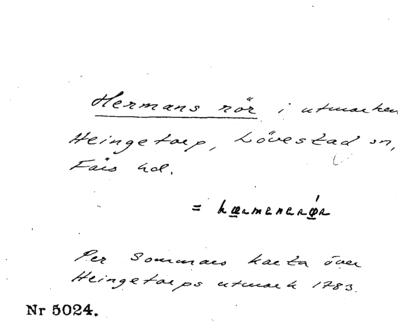 Hermans rör i utmarken
Heingetorp, Lövestad sn,
Färs hd.
= hærmenerǿr
Per Sommars karta över
Heingetorps utmark 1783.
Nr 5024.